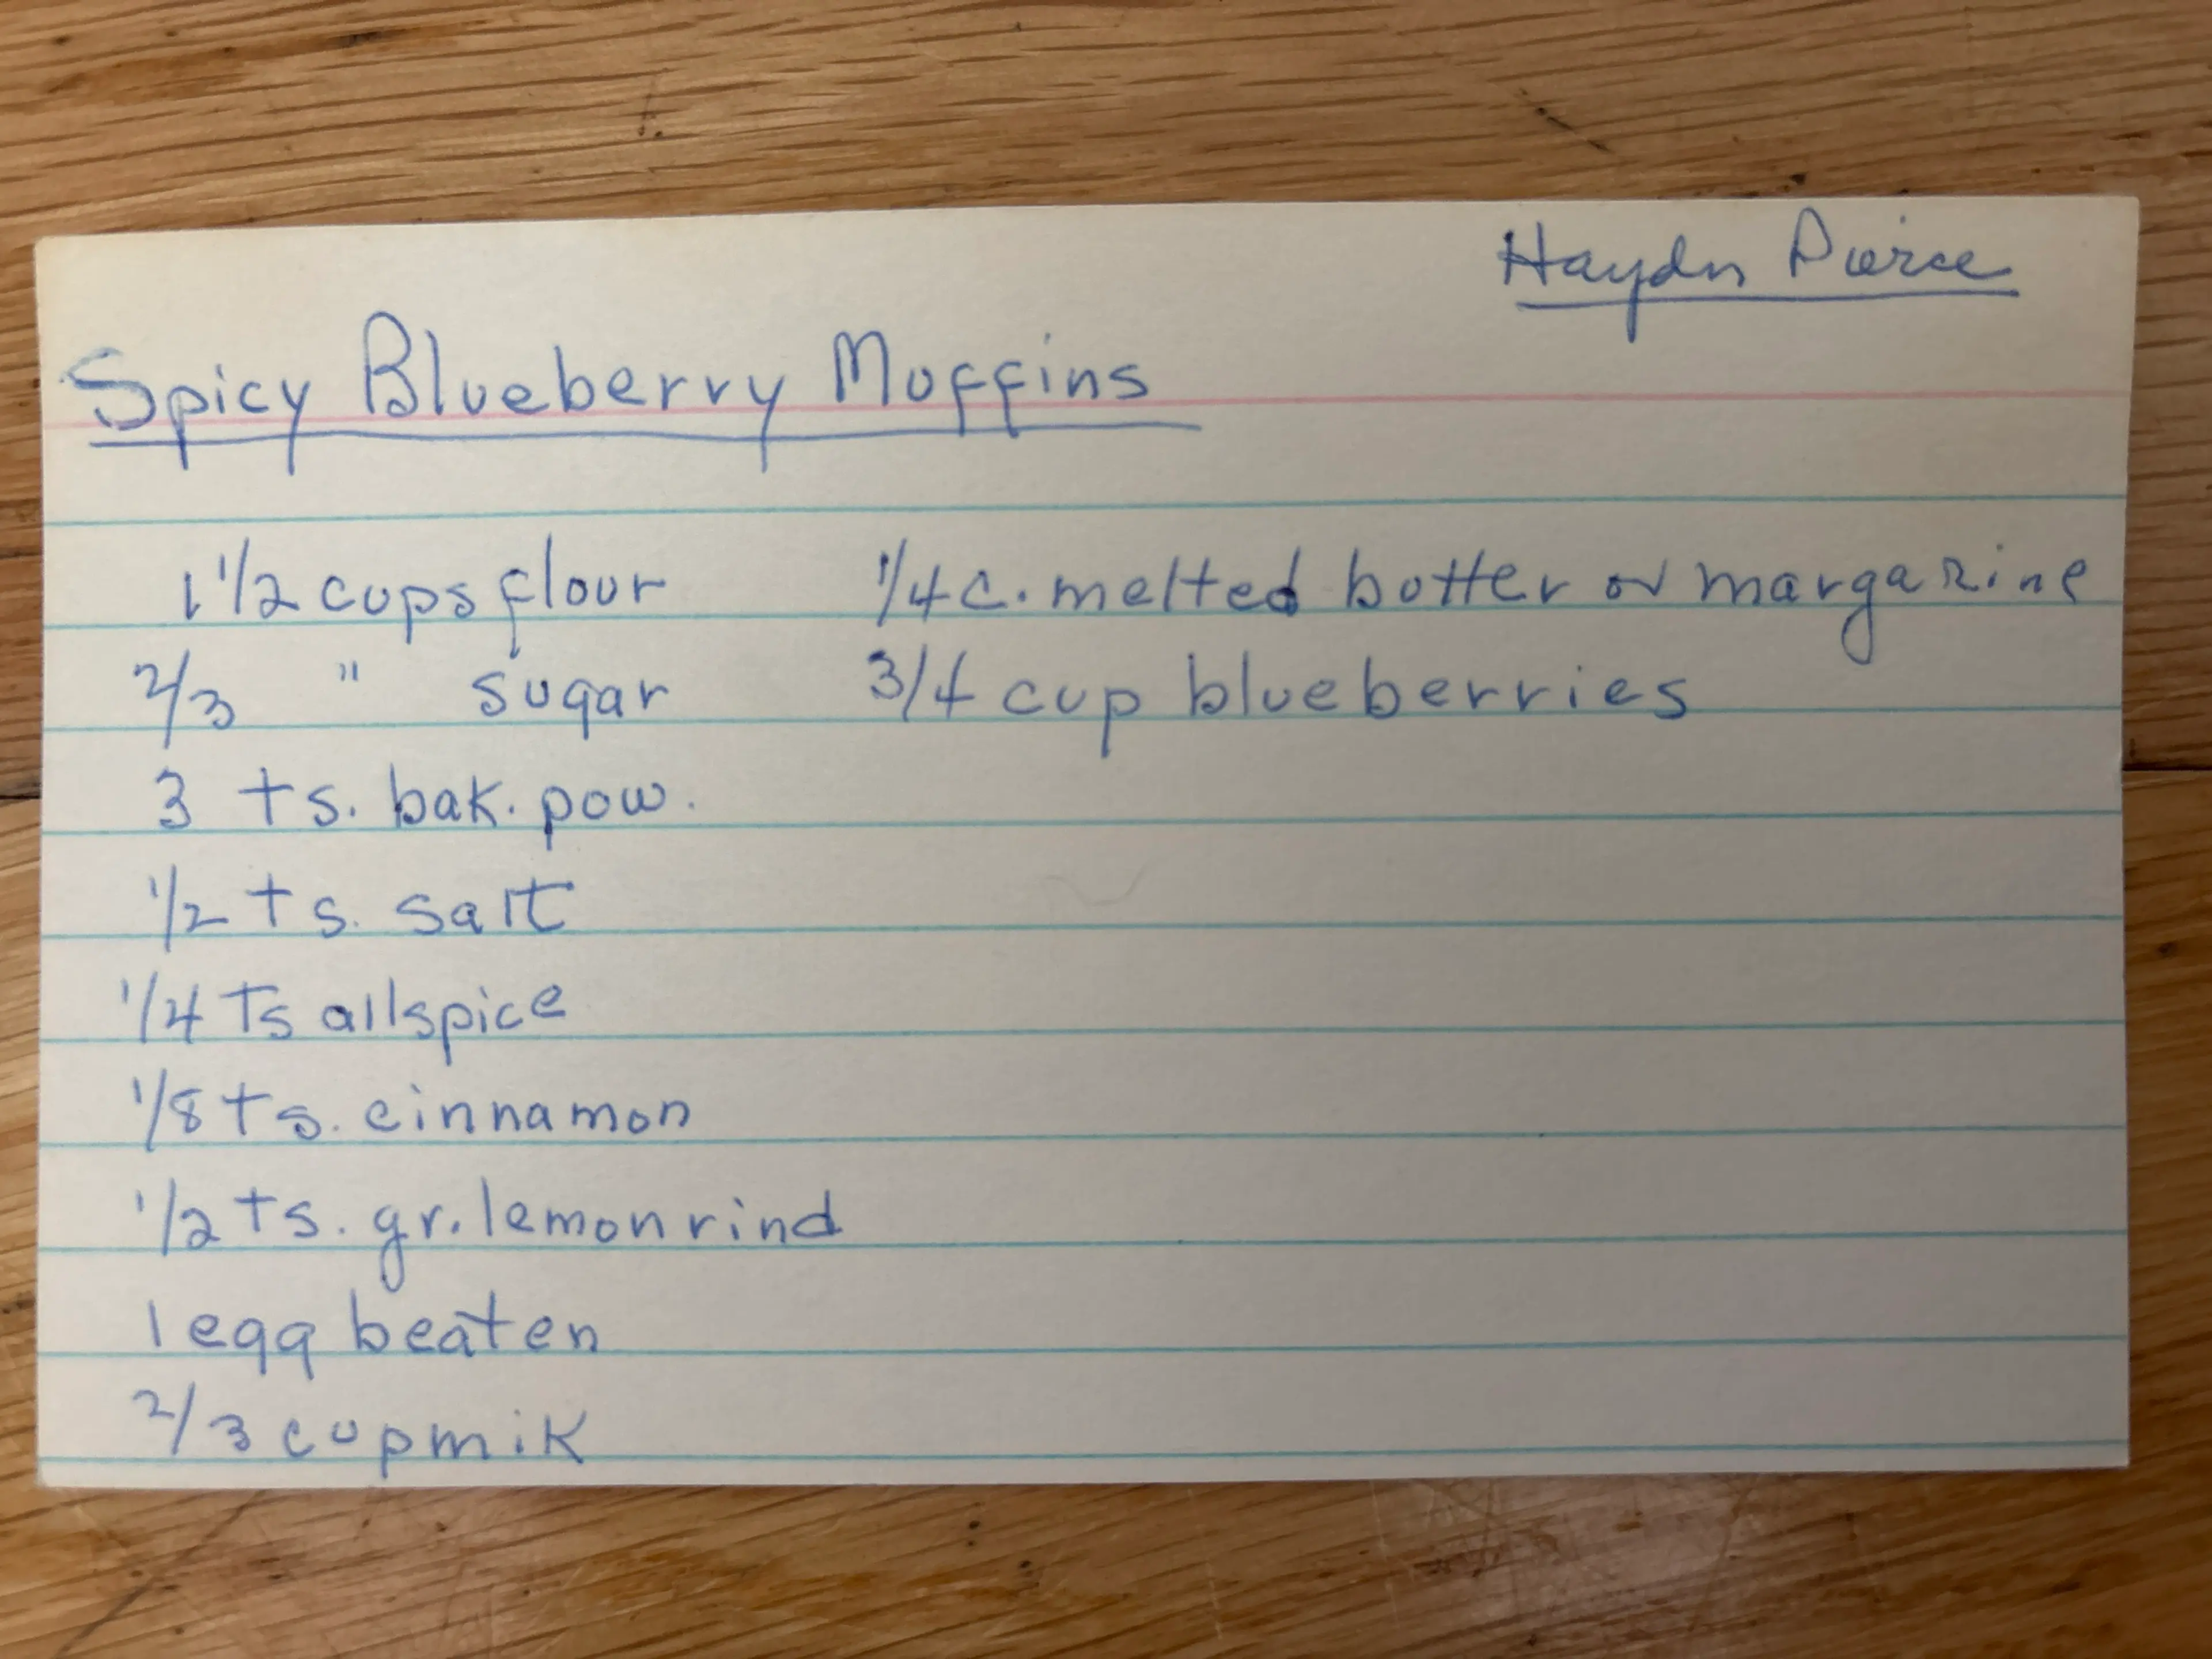 Haydn Pierce
Spicy Blueberry Muffins
1 1/2 cups flour
2/3 " sugar
3 ts. bak. pow.
1/2 ts. salt
1/4 Ts allspice
1/8 ts. cinnamon
1/2 ts. gr. lemon rind
1 egg beaten
2/3 cup mik
1/4 c. melted butter or margarine
3/4 cup blueberries